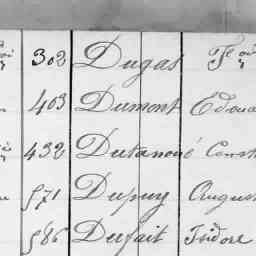 302 Dugas
403 Dumont Edoua
432 Dutanoué Const
571 Dupuy August
586 Dufait Isidore